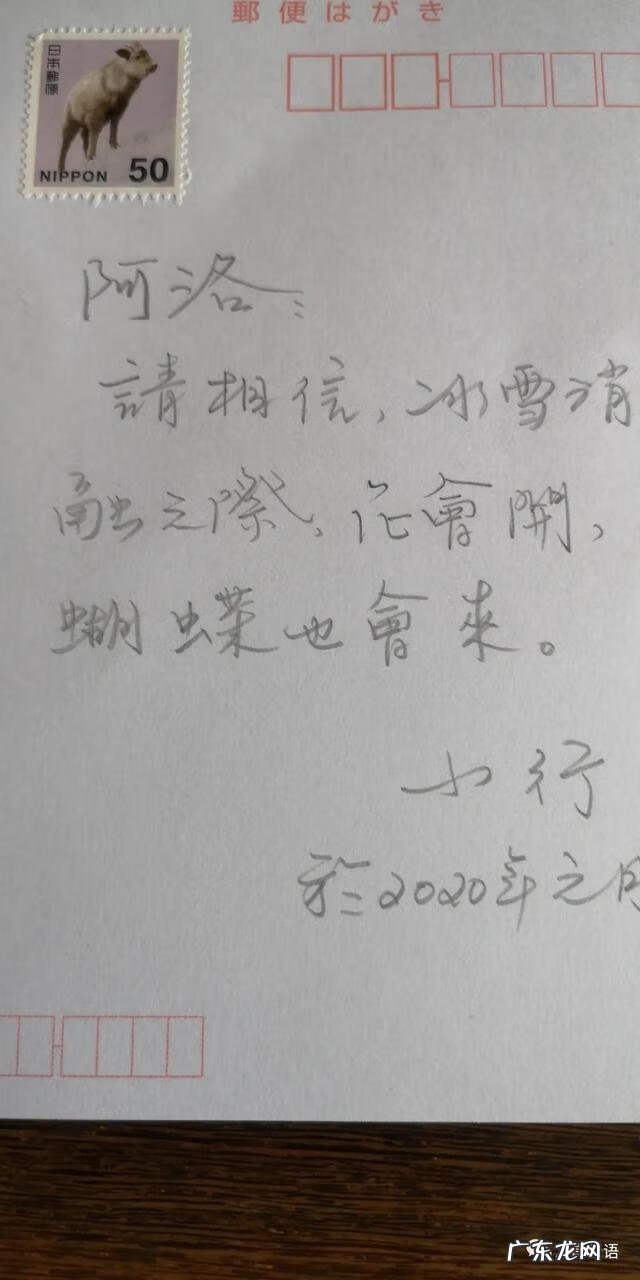 郵便はがき
日本郵便
NIPPON 50
阿洛：
請相信，冰雪消
融之際，花會開，
蝴蝶也會來。
小行
於2020年元月
广东龙网语